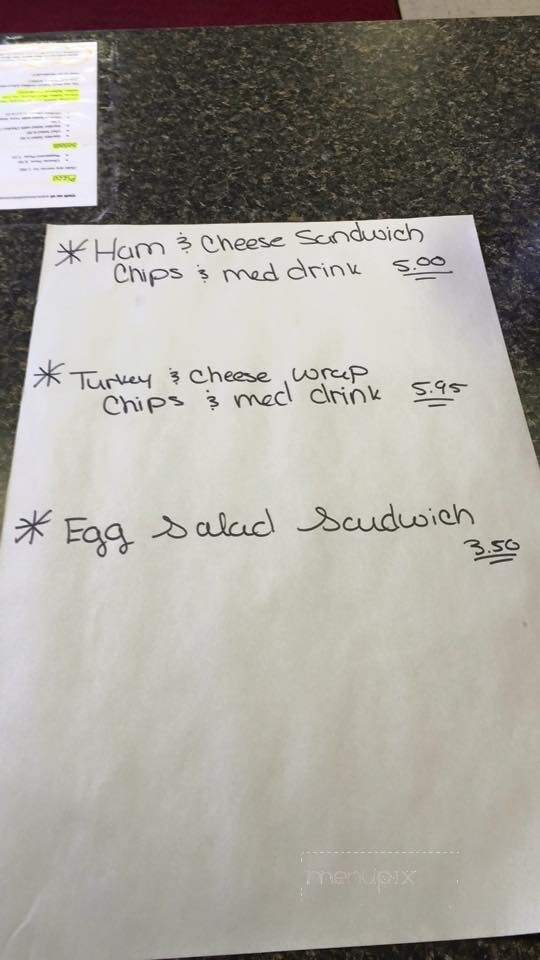 * Ham & Cheese Sandwich
Chips & med drink 5.00
* Turkey & Cheese wrap
Chips & med drink 5.95
* Egg Salad Sandwich
3.50
menupix